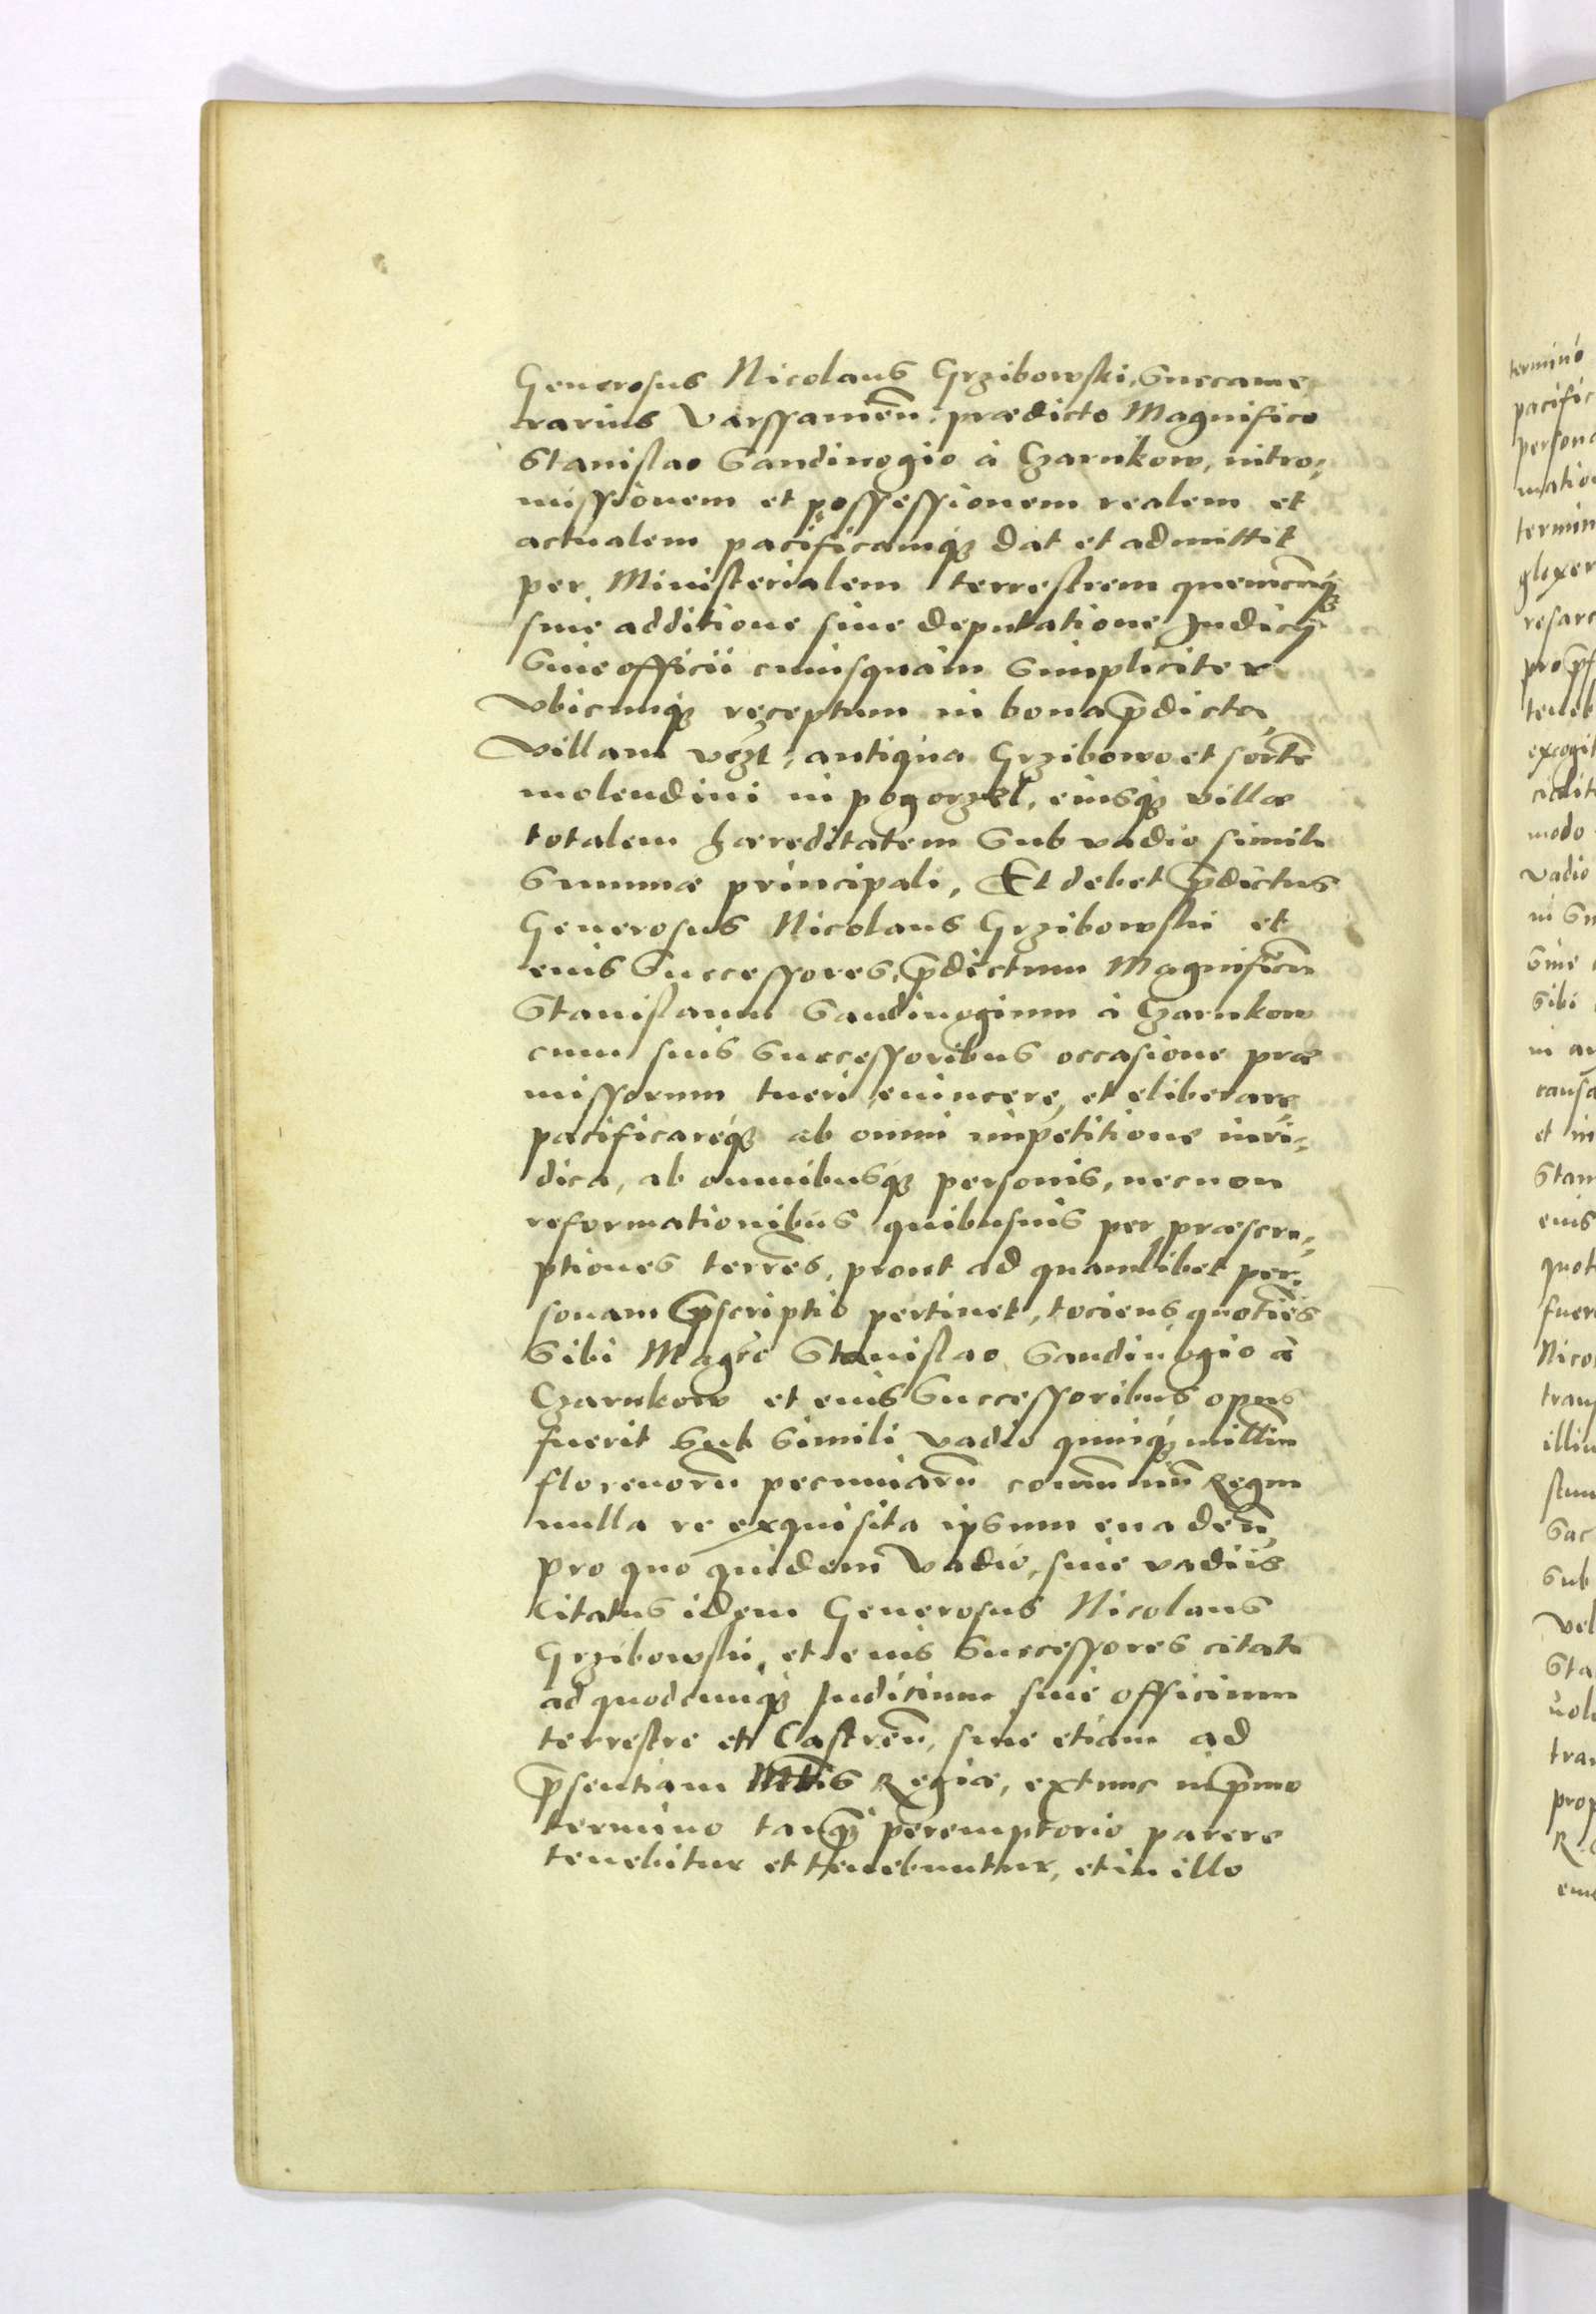 Generosus Nicolaus Grzibowski, Succame,
rarius Varssamień. prædicto Magnifico
Stanislao Sandiuogio à Czarnkow, intro,
missionem et possessionem realem et
actualem pacificamq; dat et admittit
per Ministerialem terrestrem quemcūq;
sine additione siue deputatione Judicij
Siue officii cuiusquam Simpliciter
Vbicunq; receptum in bona p̄dicta
Villam vcȝt, antiqua Grzibowo et sortē
molendini in pogorzel, eiusq; villæ
totalem hæreditatem Sub vadio simili
Summæ principali, Et debet p̄dictus
Generosus Nicolaus Grzibowski et
eius Successores, p̄dictum Magnificū
Stanislaum Sandiuogium à Czarnkow
cum suis Successoribus occasione præ
missorum tueri, euincere, et eliberare
pacificareq; ab omni impetitione iuri,
dica, ab omnibusq; personis, necnon
reformationibus quibusuis per præscri,
ptiones terrēs, prout ad quamlibet per,
sonam p̄scriptio pertinet, tociens quotiēs
Sibi Magco Stanislao Sandiuogio à
Czarnkow et eius Successoribus opus
fuerit Sub Simili vadio quinq; milliū
florenorū pecuniarū cōmuniū Regni
nulla re exquisita ipsum euadeñ
pro quo quidem Vadio, siue vadiis
Citatus idem Generosus Nicolaus
Grzibowski, et eius Successores citati
ad quodcunq; Juditium siue officium
terrestre et Castreñ, siue etiam ad
p̄sentiam Mttis Regiæ, extunc in p̄mo
termino tanq̄ peremptorio parere
tenebitur et tenebuntur, et in illo